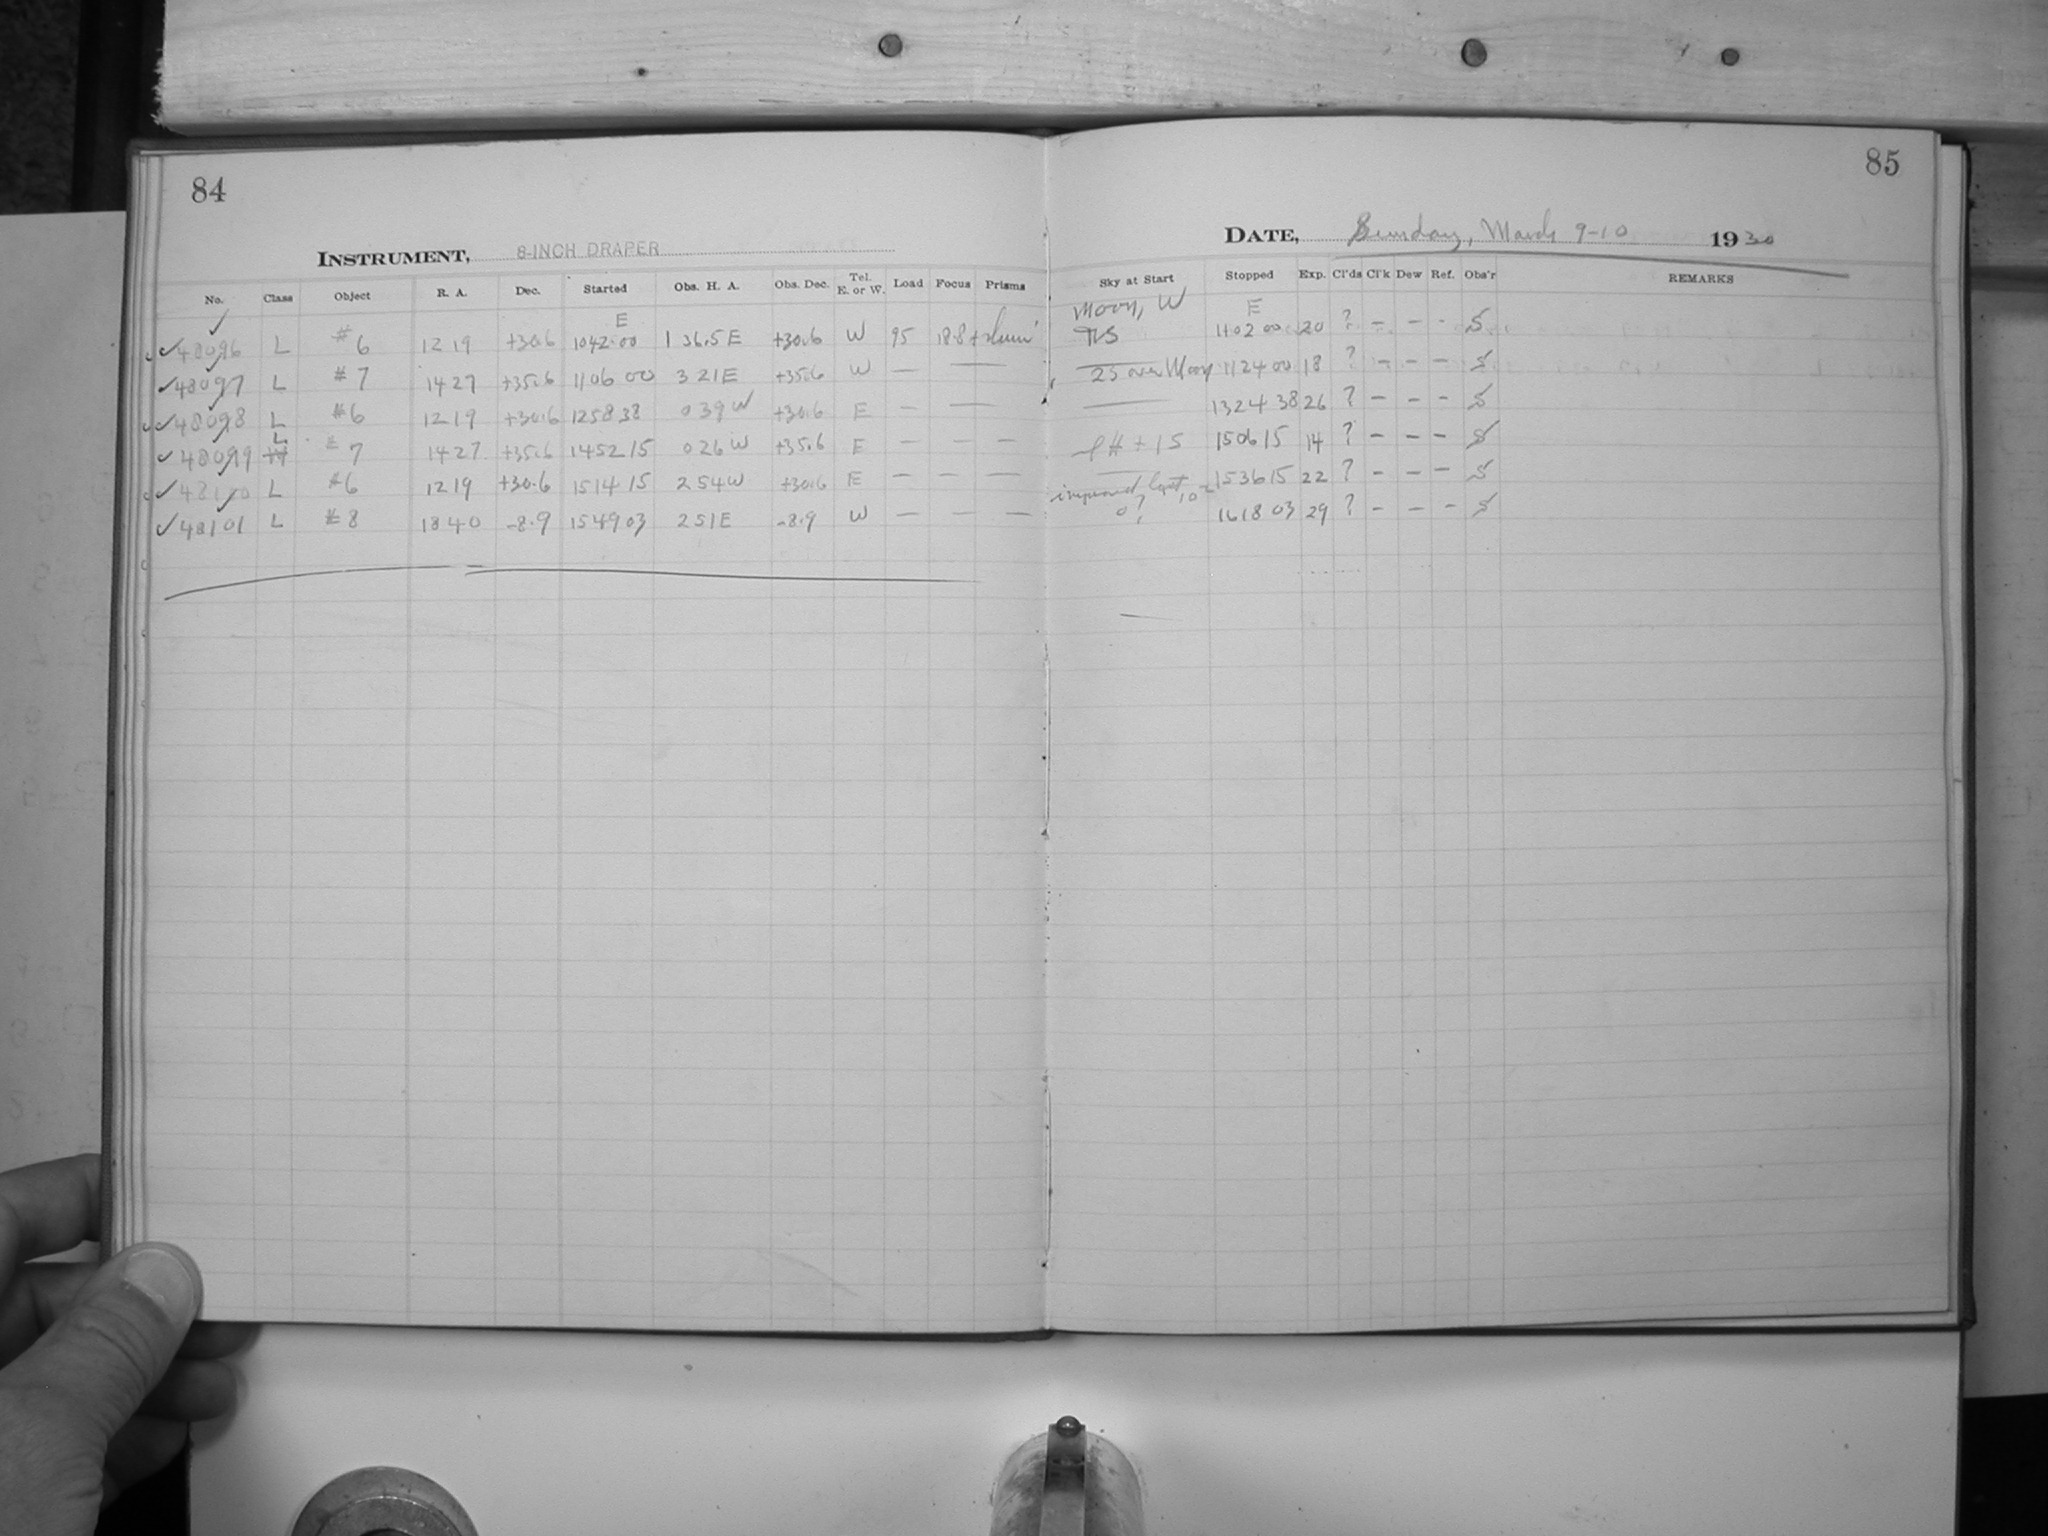 84
INSTRUMENT, 8-INCH DRAPER
No. Class Object R. A. Dec. Started Obs. H. A. Obs. Dec. Tel. E. or W. Load Focus Prisms
E
48096 L #6 12 19 +30.6 10 42 00 1 36.5 E +30.6 W 95 18.8
48097 L #7 14 27 +35.6 11 06 00 3 21 E +35.6 W — —
48098 L #6 12 19 +30.6 12 58 38 0 39 W +30.6 E — —
48099 L #7 14 27 +35.6 14 52 15 0 26 W +35.6 E — — —
48100 L #6 12 19 +30.6 15 14 15 2 54 W +30.6 E — — —
48101 L #8 18 40 -8.9 15 49 03 2 51 E -8.9 W — — —
85
DATE, Sunday, March 9-10 1930
Sky at Start Stopped Exp. Cl'ds Cl'k Dew Ref. Obs'r REMARKS
Moon, W E
11 02 00 20 ? – – - S
25 over Moon 11 24 00 18 ? – – – S
— 13 24 38 26 ? – – – S
15 15 06 15 14 ? – – – S
— 15 36 15 22 ? – – – S
improved 0? 16 18 03 29 ? – – – S